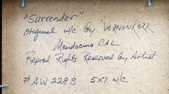 "Surrender"
Original w/c By VERNON KERR
Mendocino Cal
Reprod Rights Reserved by Artist
# AW 2283 5x7 w/c.